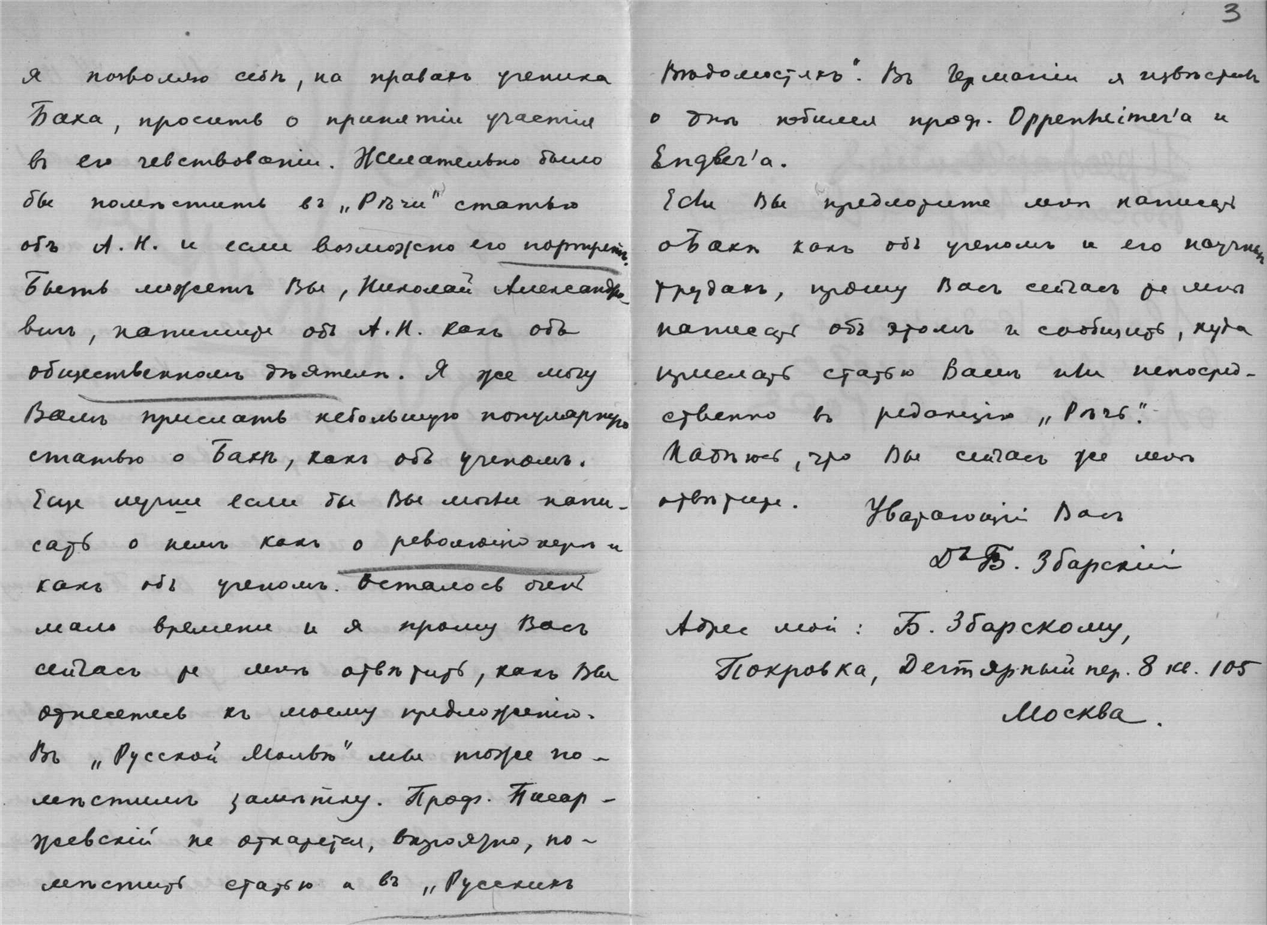 3
я позволяю себѣ, на правахъ ученика
Баха, просить о принятіи участія
въ его чевствованіи. Желательно было
бы помѣстить въ „Рѣчи" статью
объ А. Н. и если возможно его портретъ.
Быть можетъ Вы, Николай Александро-
вичъ, напишите объ А. Н. какъ объ
общественномъ дѣятелѣ. Я же могу
Вамъ прислать небольшую популярную
статью о Бахѣ, какъ объ ученомъ.
Еще лучше если бы Вы могли напи-
сать о немъ какъ о революціонерѣ и
какъ объ ученомъ. Осталось очень
мало времени и я прошу Васъ
сейчасъ же мнѣ отвѣтить, какъ Вы
отнесетесь къ моему предложенію.
Въ „Русской Молвѣ" мы тоже по-
мѣстимъ замѣтку. Проф. Писар-
жевскій не откажется, вѣроятно, по-
мѣстить статью и въ „Русскихъ
Вѣдомостяхъ". Въ Германіи я извѣстилъ
о днѣ юбилея проф. Oppenheimer'а и
Engler'а.
Если Вы предложите мнѣ написать
о Бахѣ какъ объ ученомъ и его научныхъ
трудахъ, прошу Васъ сейчасъ же мнѣ
написать объ этомъ и сообщить, куда
прислать статью Вамъ или непосред-
ственно въ редакцію „Рѣчь".
Надѣюсь, что Вы сейчасъ же мнѣ
отвѣтите.
Уважающій Васъ
Дръ Б. Збарскій
Адрес мой: Б. Збарскому,
Покровка, Дегтярный пер. 8 кв. 105
Москва.